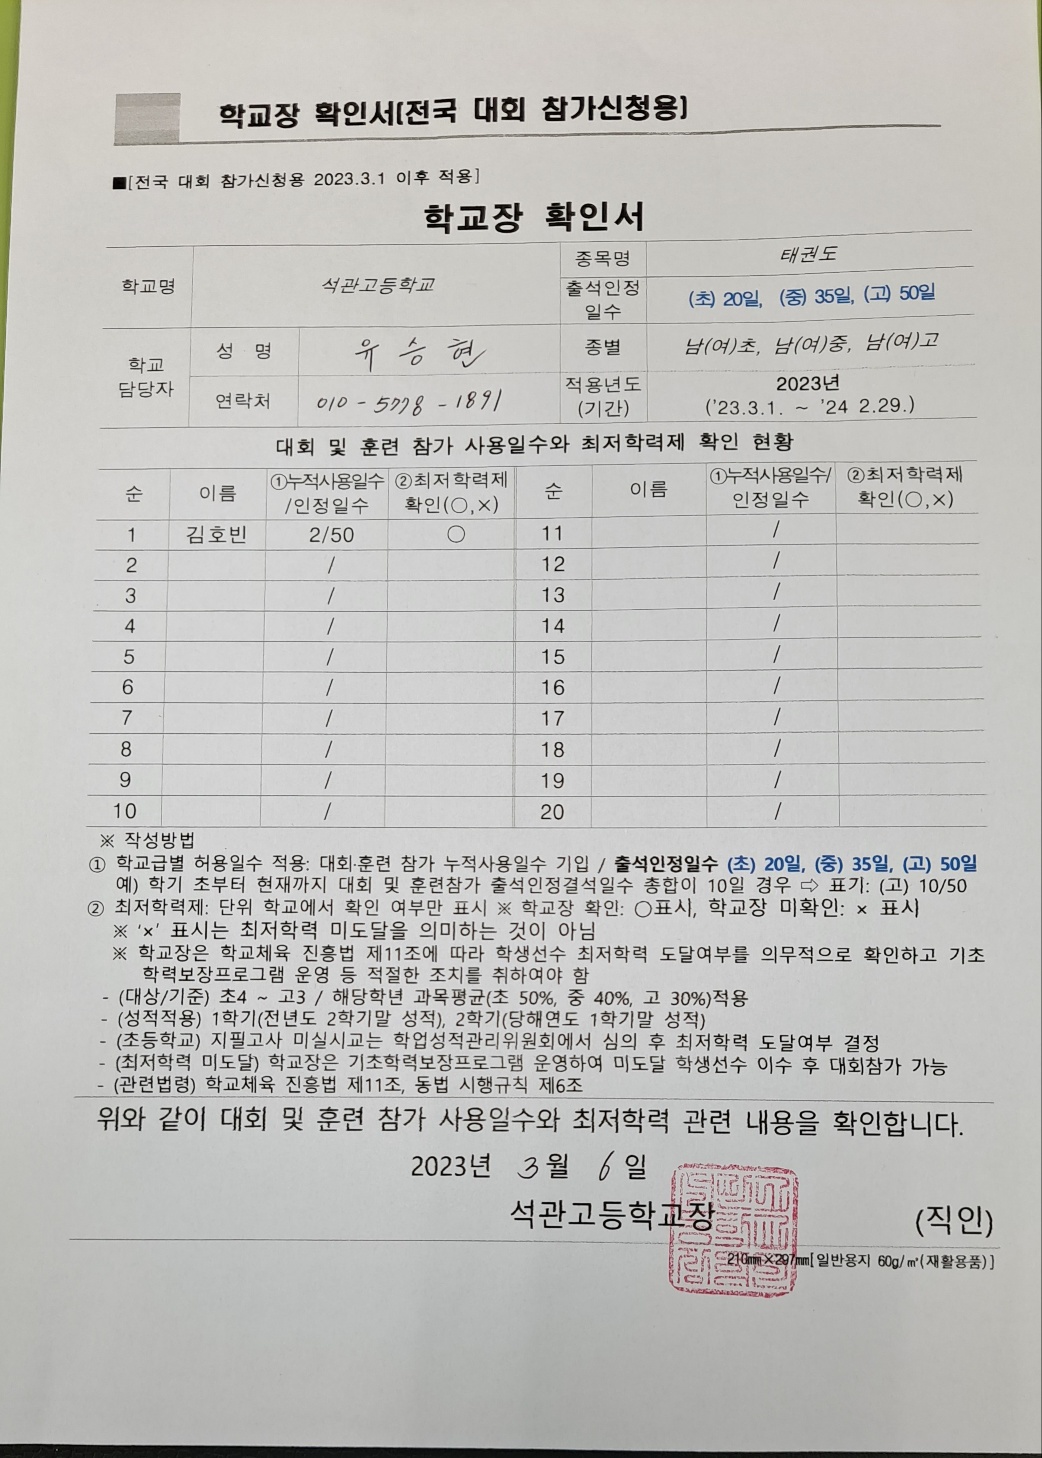 학교장 확인서(전국 대회 참가신청용)
■[전국 대회 참가신청용 2023.3.1 이후 적용]
학교장 확인서
학교명 석관고등학교 종목명 태권도
출석인정 일수 (초) 20일, (중) 35일, (고) 50일
학교 담당자 성 명 유승현 종별 남(여)초, 남(여)중, 남(여)고
연락처 010-5778-1891 적용년도 (기간) 2023년 ('23.3.1. ~ '24 2.29.)
대회 및 훈련 참가 사용일수와 최저학력제 확인 현황
순 이름 ①누적사용일수/인정일수 ②최저학력제 확인(○,×) 순 이름 ①누적사용일수/인정일수 ②최저학력제 확인(○,×)
1 김호빈 2/50 ○ 11 /
2 / 12 /
3 / 13 /
4 / 14 /
5 / 15 /
6 / 16 /
7 / 17 /
8 / 18 /
9 / 19 /
10 / 20 /
※ 작성방법
① 학교급별 허용일수 적용: 대회·훈련 참가 누적사용일수 기입 / 출석인정일수 (초) 20일, (중) 35일, (고) 50일
예) 학기 초부터 현재까지 대회 및 훈련참가 출석인정결석일수 총합이 10일 경우 ⇨ 표기: (고) 10/50
② 최저학력제: 단위 학교에서 확인 여부만 표시 ※ 학교장 확인: ○표시, 학교장 미확인: × 표시
※ '×' 표시는 최저학력 미도달을 의미하는 것이 아님
※ 학교장은 학교체육 진흥법 제11조에 따라 학생선수 최저학력 도달여부를 의무적으로 확인하고 기초
학력보장프로그램 운영 등 적절한 조치를 취하여야 함
- (대상/기준) 초4 ~ 고3 / 해당학년 과목평균(초 50%, 중 40%, 고 30%)적용
- (성적적용) 1학기(전년도 2학기말 성적), 2학기(당해연도 1학기말 성적)
- (초등학교) 지필고사 미실시교는 학업성적관리위원회에서 심의 후 최저학력 도달여부 결정
- (최저학력 미도달) 학교장은 기초학력보장프로그램 운영하여 미도달 학생선수 이수 후 대회참가 가능
- (관련법령) 학교체육 진흥법 제11조, 동법 시행규칙 제6조
위와 같이 대회 및 훈련 참가 사용일수와 최저학력 관련 내용을 확인합니다.
2023년 3월 6일
석관고등학교장 (직인)
210㎜×297㎜[일반용지 60g/㎡(재활용품)]